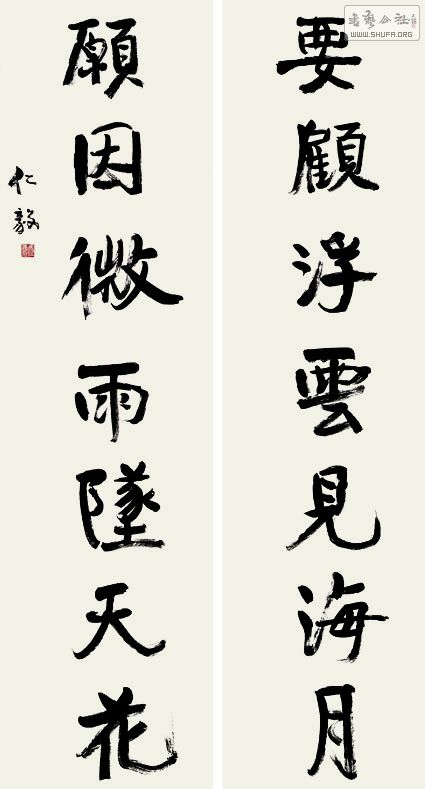 要顧浮雲見海月
願因微雨墜天花
仁毅
書藝公社
WWW.SHUFA.ORG